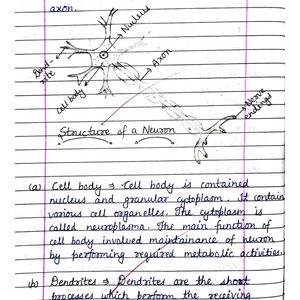 axon.
Nucleus
Dend-
rite
Axon
Cell body
Nerve
endings
Structure of a Neuron
(a) Cell body ⇒ Cell body is contained
nucleus and granular cytoplasm. It contain
various cell organelles. The cytoplasm is
called neuroplasma. The main function of
cell body involved maintainance of neuron
by performing required metabolic activities.
(b) Dendrites ⇒ Dendrites are the short
processes which perform the receiving